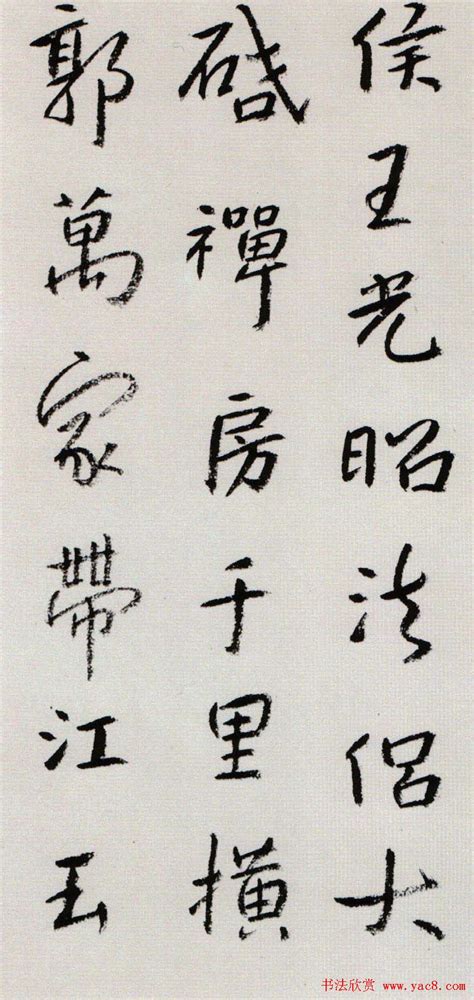 侯王光昭法侶大
啟禪房千里橫
郭萬家帶江玉
书法欣赏 www.yac8.com